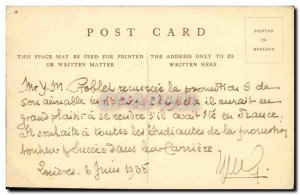 POST CARD
THIS SPACE MAY BE USED FOR PRINTED
OR WRITTEN MATTER
THE ADDRESS ONLY TO BE
WRITTEN HERE
PRINTED
IN
ENGLAND
Mr Y. M. Goblet remercie la promotion S de
son aimable invitation à laquelle il aurait eu
grand plaisir à se rendre s'il avait été en France.
Il souhaite à toutes les étudiantes de la promotion
bonheur & succès dans leur carrière.
Londres, 6 juin 1936